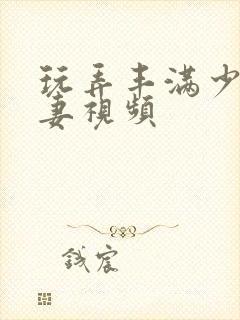 玩弄丰满少
妻視頻
錢宸